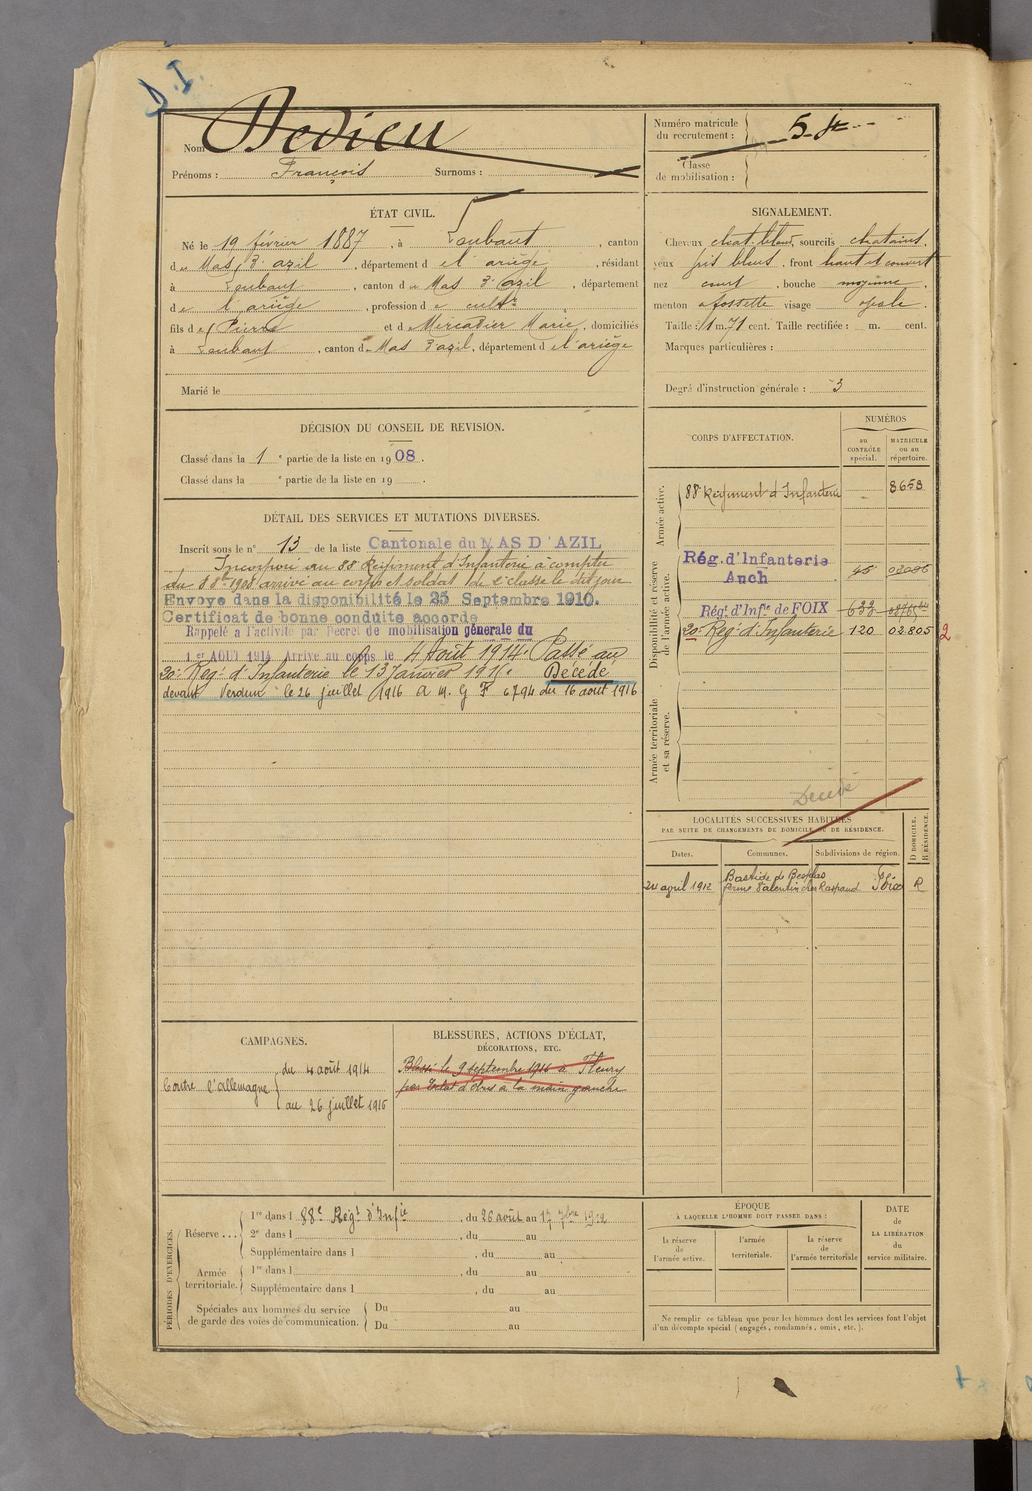 D.I.
Nom Dedieu
Prénoms : François Surnoms :
Numéro matricule
du recrutement : 5
Classe
de mobilisation :
ÉTAT CIVIL.
Né le 19 février 1887, à Loubaut, canton
d u Mas d'azil, département d e l'ariège, résidant
à Loubaut, canton d u Mas d'azil, département
d e l'ariège, profession d e cultr
fils d e Pierre et d e Mercadier Marie, domiciliés
à Loubaut, canton d u Mas d'azil, département d e l'ariège
Marié le
SIGNALEMENT.
Cheveux chat. blond, sourcils chatains,
yeux gris bleus, front haut et couvert
nez court, bouche moyenne,
menton à fossette visage ovale.
Taille : 1 m. 71 cent. Taille rectifiée : m. cent.
Marques particulières :
Degré d'instruction générale : 3
DÉCISION DU CONSEIL DE REVISION.
Classé dans la 1 e partie de la liste en 1908.
Classé dans la e partie de la liste en 19 .
DÉTAIL DES SERVICES ET MUTATIONS DIVERSES.
Inscrit sous le n° 13 de la liste Cantonale du MAS D'AZIL
Incorporé au 88 Régiment d'Infanterie à compter
du 8 8bre 1908 arrivé au corps et soldat de 2e classe le dit jour
Envoyé dans la disponibilité le 25 Septembre 1910.
Certificat de bonne conduite accordé
Rappelé à l'activité par Décret de mobilisation générale du
1er AOUT 1914 Arrivé au corps le 4 Août 1914. Passé au
20e Régt d'Infanterie le 13 Janvier 1916. Décédé
devant Verdun le 26 juillet 1916 A M. G F 6794 du 16 août 1916
CORPS D'AFFECTATION.
NUMÉROS
au
CONTRÔLE
spécial.
MATRICULE
ou au
répertoire.
Armée active.
88 Régiment d'Infanterie 8653
Disponibilité et réserve
de l'armée active.
Rég. d'Infanterie
Auch
Régt. d'Infie de FOIX 633
20e Régt d'Infanterie 120 02805 2
Armée territoriale
et sa réserve.
Décédé
LOCALITÉS SUCCESSIVES HABITÉES
PAR SUITE DE CHANGEMENTS DE DOMICILE OU DE RÉSIDENCE.
D DOMICILE.
R RÉSIDENCE.
Dates. Communes. Subdivisions de région.
Bastide de Besplas
24 avril 1912 ferme Valentin chez Raspaud Foix R
CAMPAGNES.
Contre l'allemagne
du 4 août 1914
au 26 juillet 1916
BLESSURES, ACTIONS D'ÉCLAT,
DÉCORATIONS, ETC.
Blessé le 9 septembre 1916 à Fleury
par éclat d'obus à la main gauche
PÉRIODES D'EXERCICES.
Réserve ...
1re dans l 88e Régt d'Infie, du 26 août au 17 7bre 1912
2e dans l , du au
Supplémentaire dans l , du au
Armée
territoriale.
1re dans l , du au
Supplémentaire dans l , du au
Spéciales aux hommes du service
de garde des voies de communication.
Du au
Du au
ÉPOQUE
À LAQUELLE L'HOMME DOIT PASSER DANS :
la réserve
de
l'armée active.
l'armée
territoriale.
la réserve
de
l'armée territoriale
DATE
de
LA LIBÉRATION
du
service militaire.
Ne remplir ce tableau que pour les hommes dont les services font l'objet
d'un décompte spécial (engagés, condamnés, omis, etc.).